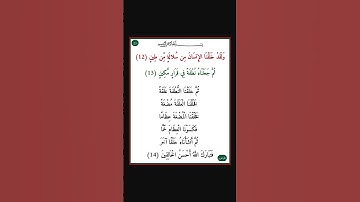 وَلَقَدْ خَلَقْنَا الْإِنْسَانَ مِن سُلَالَةٍ مِّن طِينٍ (12)
ثُمَّ جَعَلْنَاهُ نُطْفَةً فِي قَرَارٍ مَّكِينٍ (13)
ثُمَّ خَلَقْنَا النُّطْفَةَ عَلَقَةً
فَخَلَقْنَا الْعَلَقَةَ مُضْغَةً
فَخَلَقْنَا الْمُضْغَةَ عِظَامًا
فَكَسَوْنَا الْعِظَامَ لَحْمًا
ثُمَّ أَنشَأْنَاهُ خَلْقًا آخَرَ
فَتَبَارَكَ اللَّهُ أَحْسَنُ الْخَالِقِينَ (14)